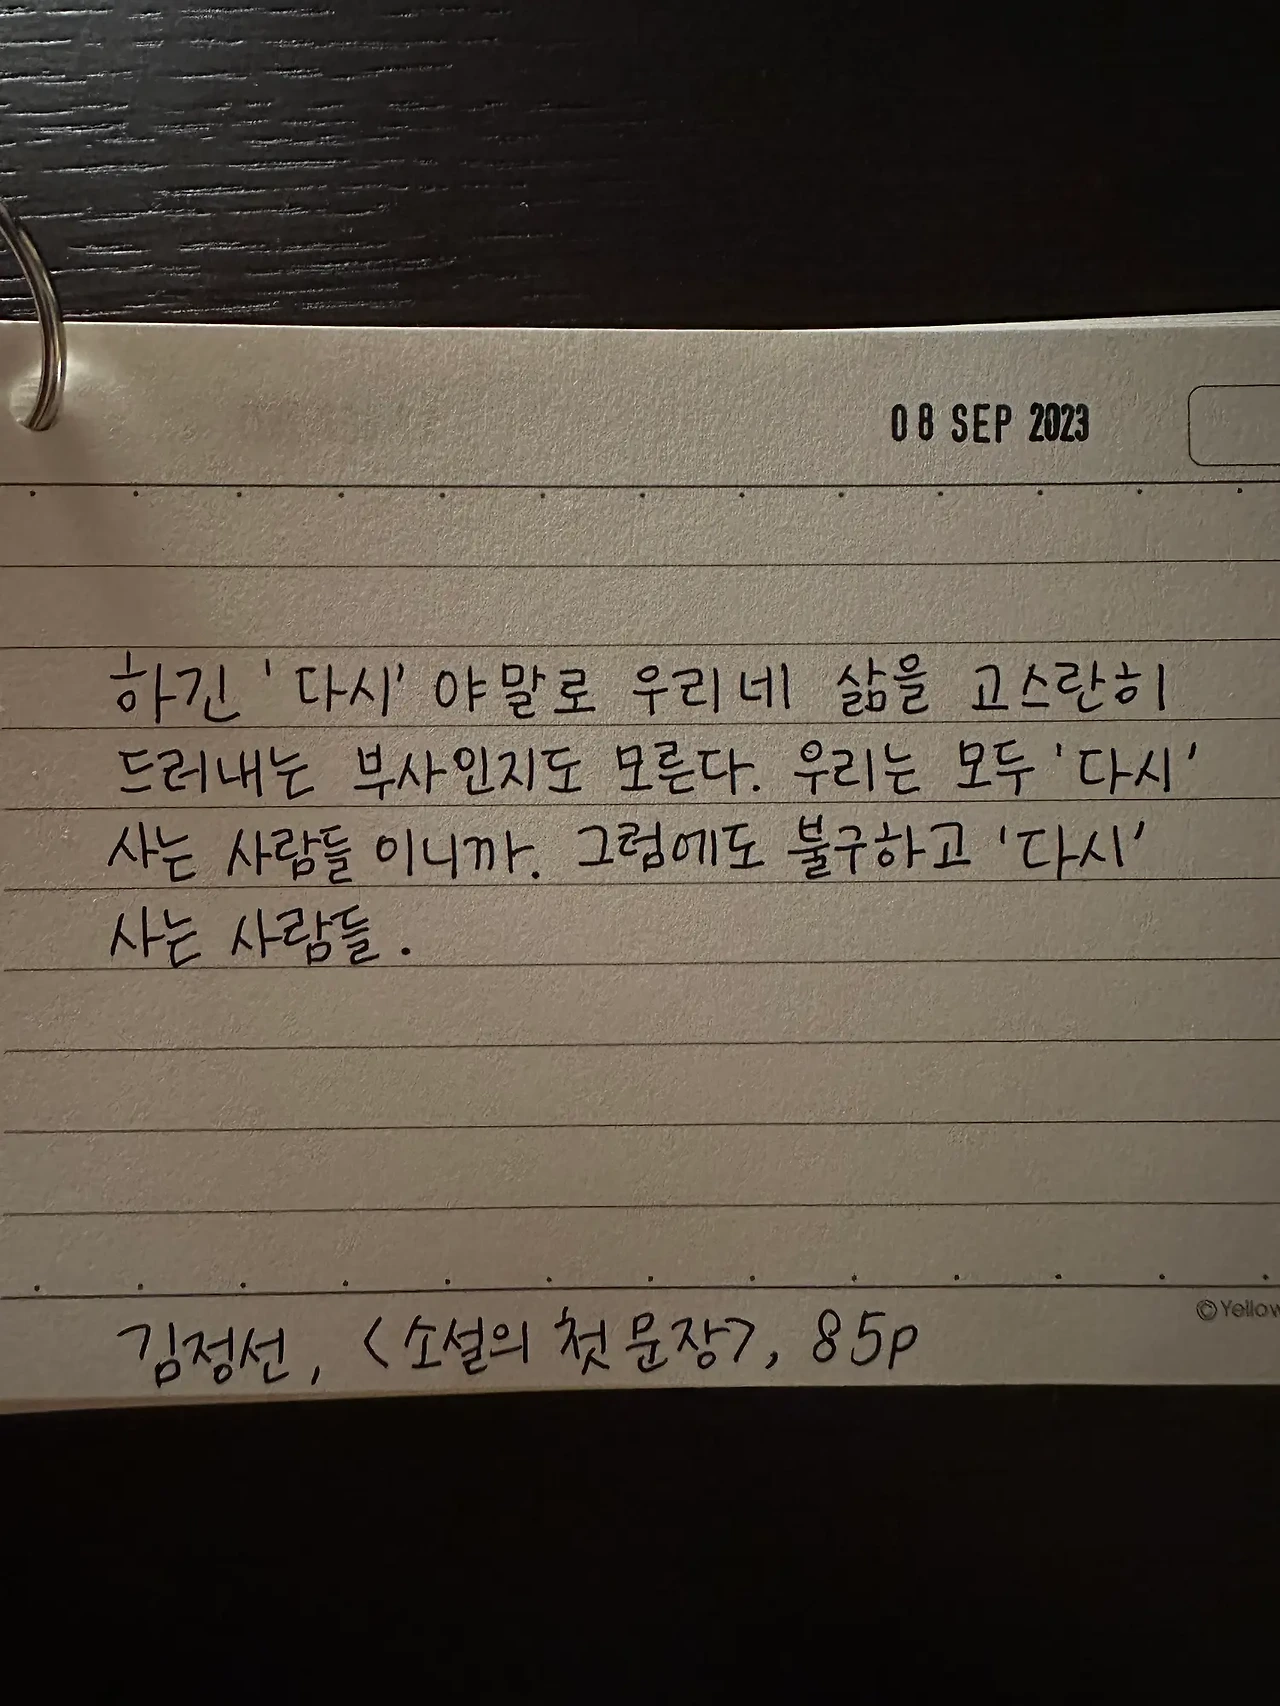 08 SEP 2023
하긴 '다시' 야말로 우리네 삶을 고스란히
드러내는 부사인지도 모른다. 우리는 모두 '다시'
사는 사람들 이니까. 그럼에도 불구하고 '다시'
사는 사람들.
©Yellow
김정선, <소설의 첫 문장>, 85p